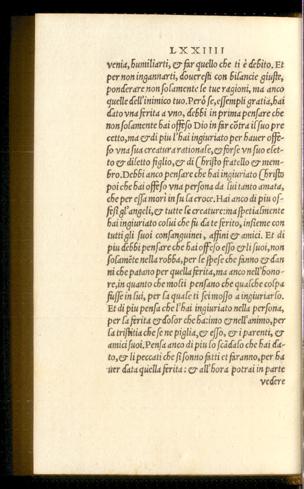 LXXIIII
venia, humiliarti, & far quello che ti è debito. Et
per non ingannarti, doueresti con bilancie giuste,
ponderare non solamente le tue ragioni, ma anco
quelle dell'inimico tuo. Però se, essempli gratia, hai
dato vna ferita a vno, debbi in prima pensare che
non solamente hai offeso Dio in far cōtra il suo pre
cetto, ma & di piu l'hai ingiuriato per hauer offe-
so vna sua creatura rationale, & forse vn suo elet-
to & diletto figlio, & di Christo fratello & mem-
bro. Debbi anco pensare che hai ingiuriato Christo
poi che hai offeso vna persona da lui tanto amata,
che per essa mori in su la croce. Hai anco di piu of-
fesi gl'angeli, & tutte le creature: ma spetialmente
hai ingiuriato colui che fu da te ferito, insieme con
tutti gli suoi consanguinei, affini & amici. Et di
piu debbi pensare che hai offeso esso & li suoi, non
solamēte nella robba, per le spese che fanno & dan
ni che patano per quella ferita, ma anco nell'hono-
re, in quanto che molti pensano che qualche colpa
fusse in lui, per la quale ti sei mosso a ingiuriarlo.
Et di piu pensa che l'hai ingiuriato nella persona,
per la ferita & dolor che ha: imo & nell'animo, per
la tristitia che se ne piglia, & esso, & i parenti, &
amici suoi. Pensa anco di piu lo scādalo che hai da-
to, & li peccati che si sonno fatti et faranno, per ha
uer data quella ferita: & all'hora potrai in parte
vedere